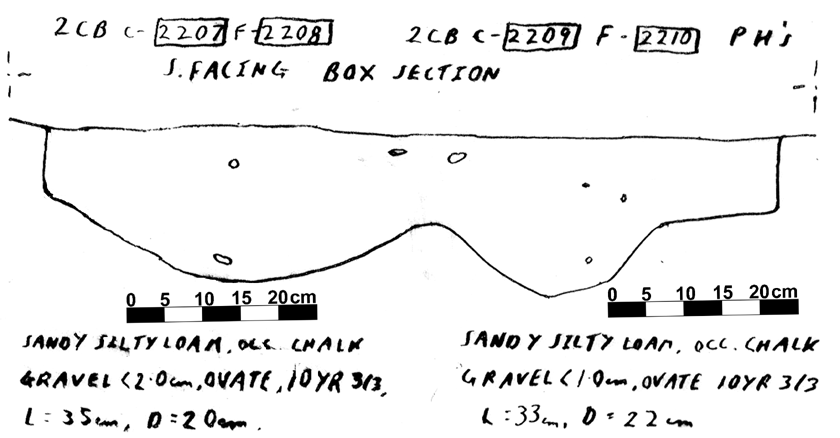 2CB C-2207 F-2208
2CB C-2209 F-2210 PH's
S. FACING BOX SECTION
0 5 10 15 20cm
0 5 10 15 20cm
SANDY SILTY LOAM, OCC. CHALK
GRAVEL <2.0cm, OVATE, 10YR 3/3,
L = 35cm, D = 20cm.
SANDY SILTY LOAM, OCC. CHALK
GRAVEL <1.0cm, OVATE 10YR 3/3
L = 33cm, D = 22cm